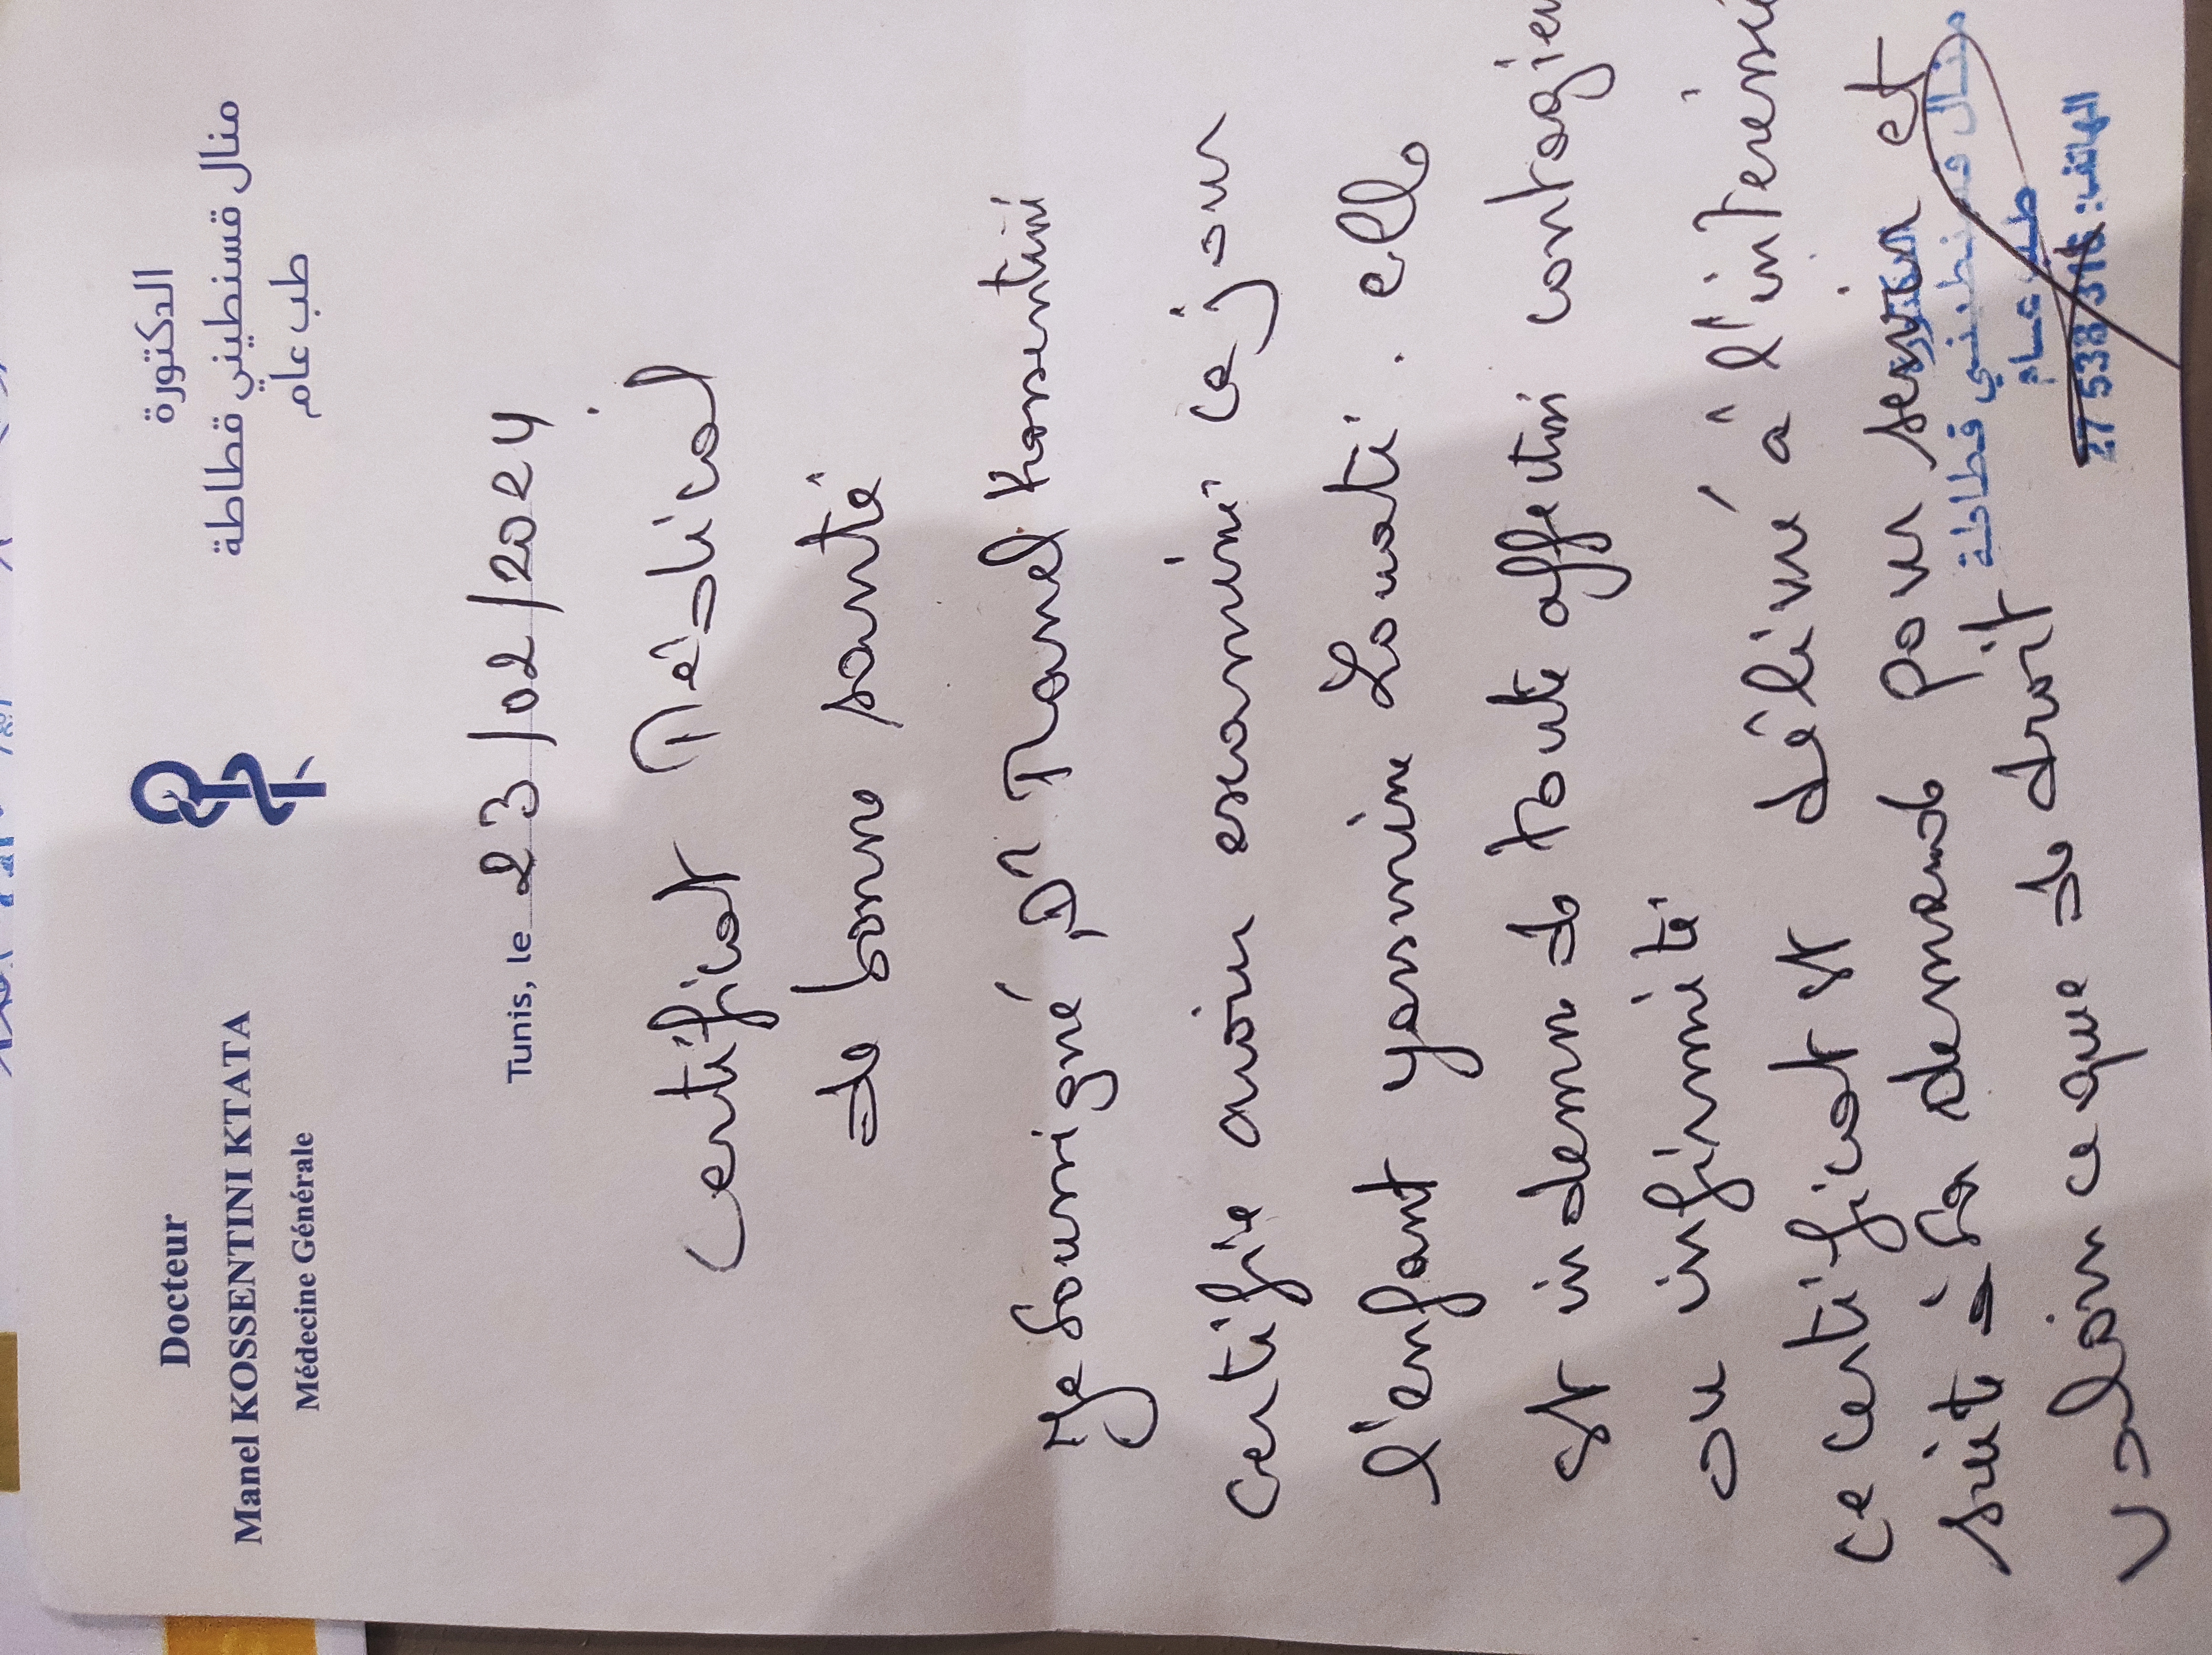 Docteur
Manel KOSSENTINI KTATA
Médecine Générale
الدكتورة
منال قسنطيني قطاطة
طب عام
Tunis, le 23/02/2024
Certificat Médical
de bonne santé
Je soussigné, Dr Manel Kossentini
certifie avoir examiné ce jour
l'enfant Yasmine Louati. elle
est indemne de toute affection contagieu
ou infirmité
ce certificat est délivré à l'interessé
suite à sa demande pour servir et
valoir ce que de droit
الدكتورة
منال قسنطيني قطاطة
طب عام
الهاتف: 27 538 316